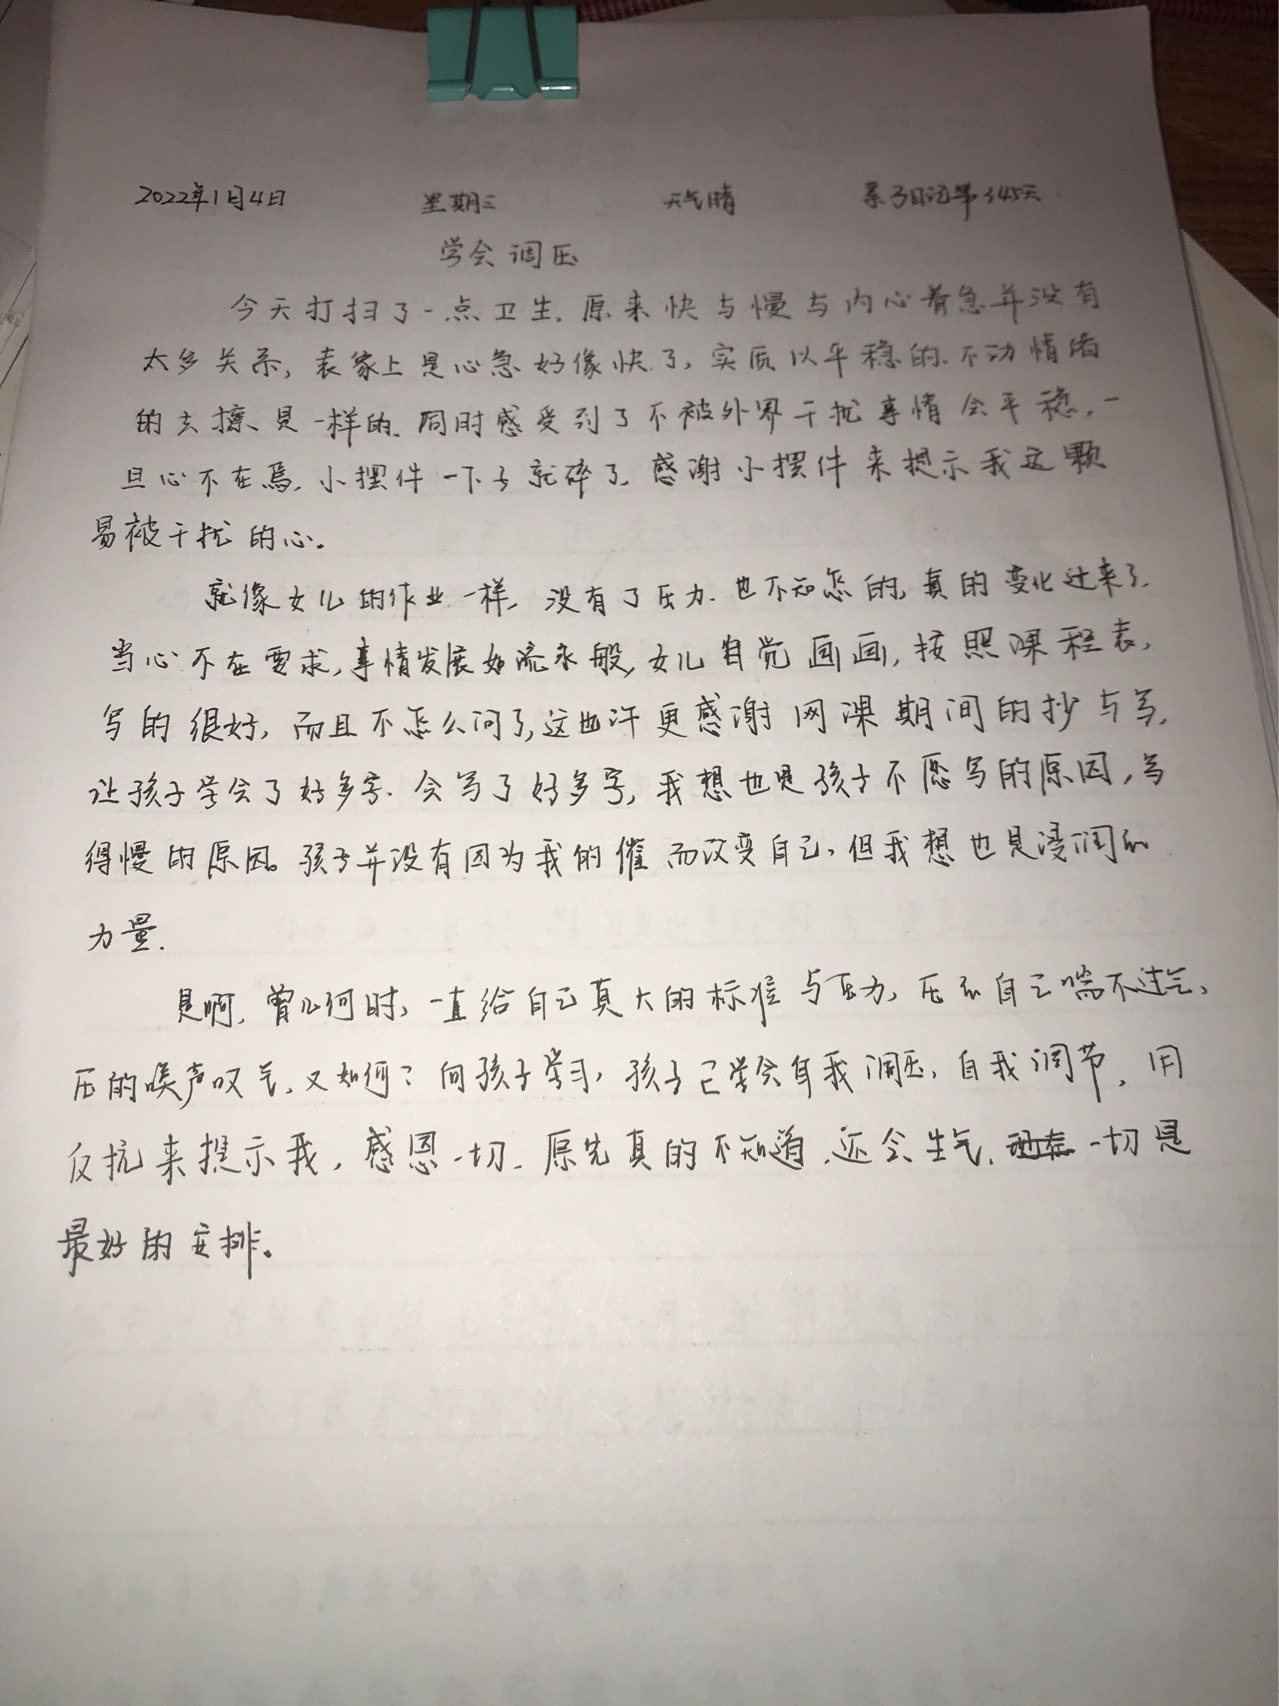 2022年1月4日 星期三 天气晴 亲子日记第345天
学会调压
今天打扫了一点卫生.原来快与慢与内心着急并没有
太多关系,表象上是心急好像快了,实质以平稳的、不动情绪
的去擦、是一样的.同时感受到了不被外界干扰事情会平稳,一
旦心不在焉,小摆件一下子就碎了,感谢小摆件来提示我这颗
易被干扰的心。
就像女儿的作业一样,没有了压力.也不知怎的,真的变化过来了.
当心不在要求,事情发展如流水般,女儿自觉画画,按照课程表,
写的很好,而且不怎么问了,这也许更感谢网课期间的抄与写,
让孩子学会了好多字.会写了好多字,我想也是孩子不愿写的原因,写
得慢的原因。孩子并没有因为我的催而改变自己,但我想也是浸润的
力量.
是啊,曾几何时,一直给自己莫大的标准与压力,压的自己喘不过气,
压的唉声叹气,又如何?向孩子学习,孩子已学会自我调压,自我调节,用
反抗来提示我,感恩一切.原先真的不知道,还会生气,一切是
最好的安排。